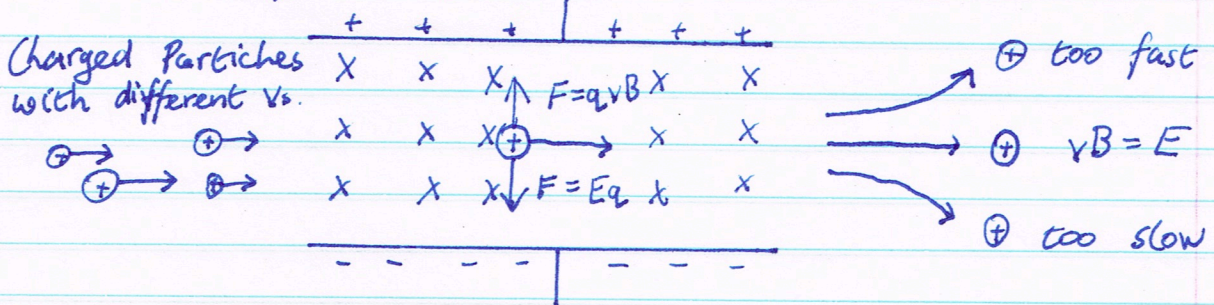 + + + + + +
Charged Partiches
with different Vs.
X X X X X
F=qvB
X X X X X
F=Eq
X X X X X
- - - - - - -
+ + + +
+ too fast
+ vB = E
+ too slow
+